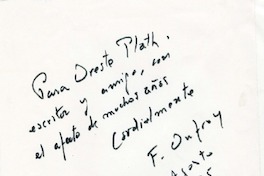 Para Oreste Plath,
escritor y amigo, con
el afecto de muchos años
Cordialmente
F. Onfray
Agosto